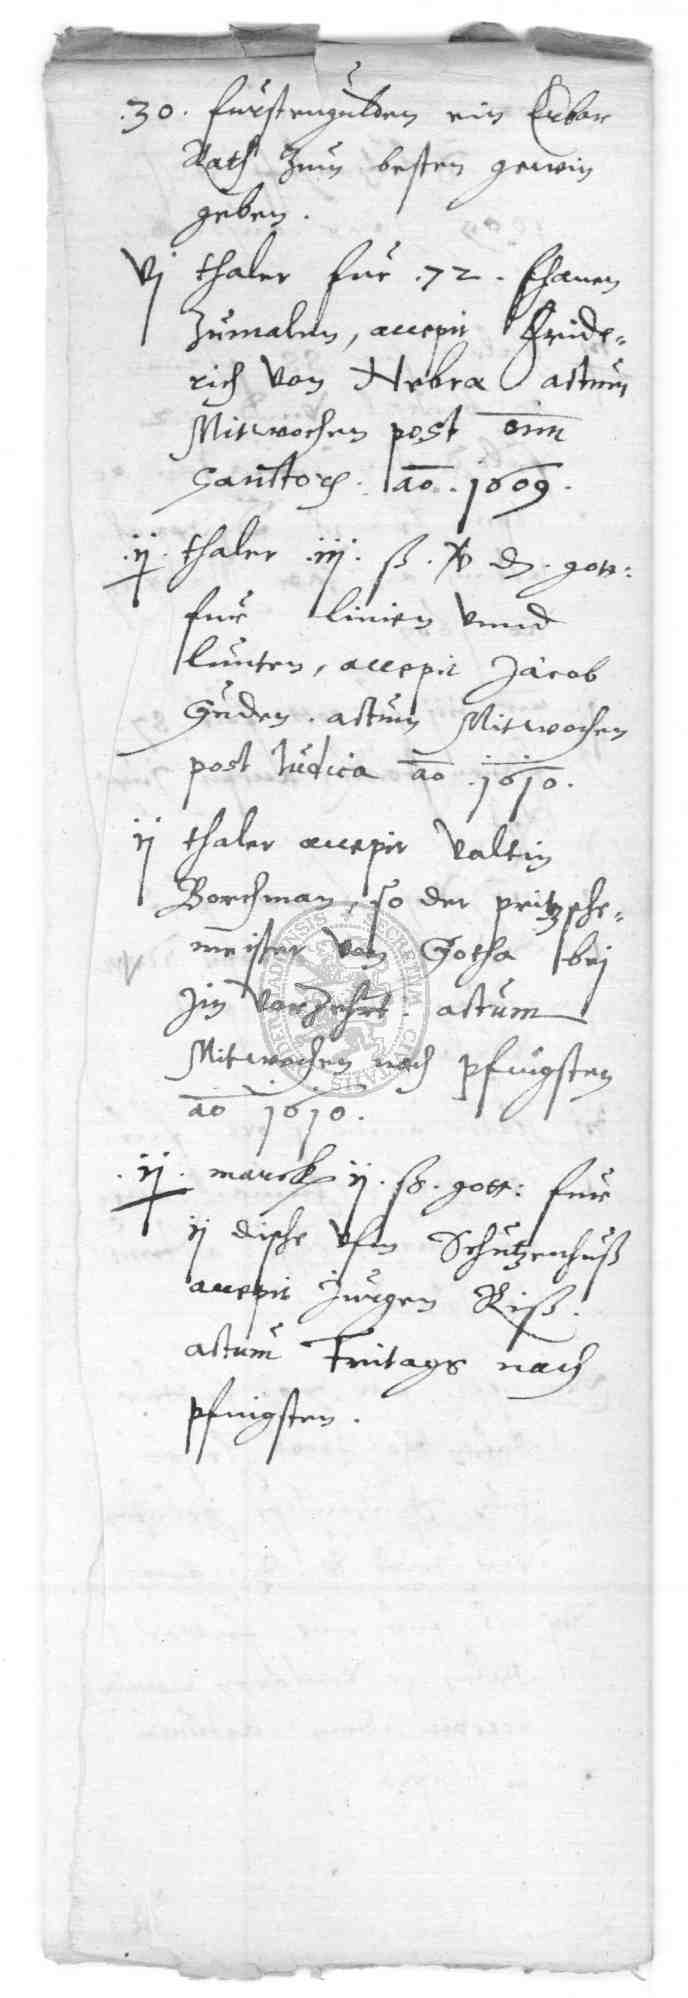 .30. furstengulden ein Erbar
Rath zum besten gewin
geben.
vj thaler fur .72. fhanen
zumalen, accepit Fride-
rich von Nebra actum
Mitwochen post om
Sanctor. ao. 1609.
.ij. thaler .iij. ß. d. gott:
fur linien vnnd
lunten, accepit Jacob
Guden. actum Mitwochen
post Judica ao .1610.
ij thaler accepit Valtin
Borchman, so der pritzsche-
meister von Gotha bej
jm vorzehrt. actum
Mitwochen nach pfingsten
ao 1610.
.ij. marck ij. ß. gott: fur
ij dische vfm Schutzenhuß
accepit Jurgen Riß.
actum Fritags nach
pfingsten.